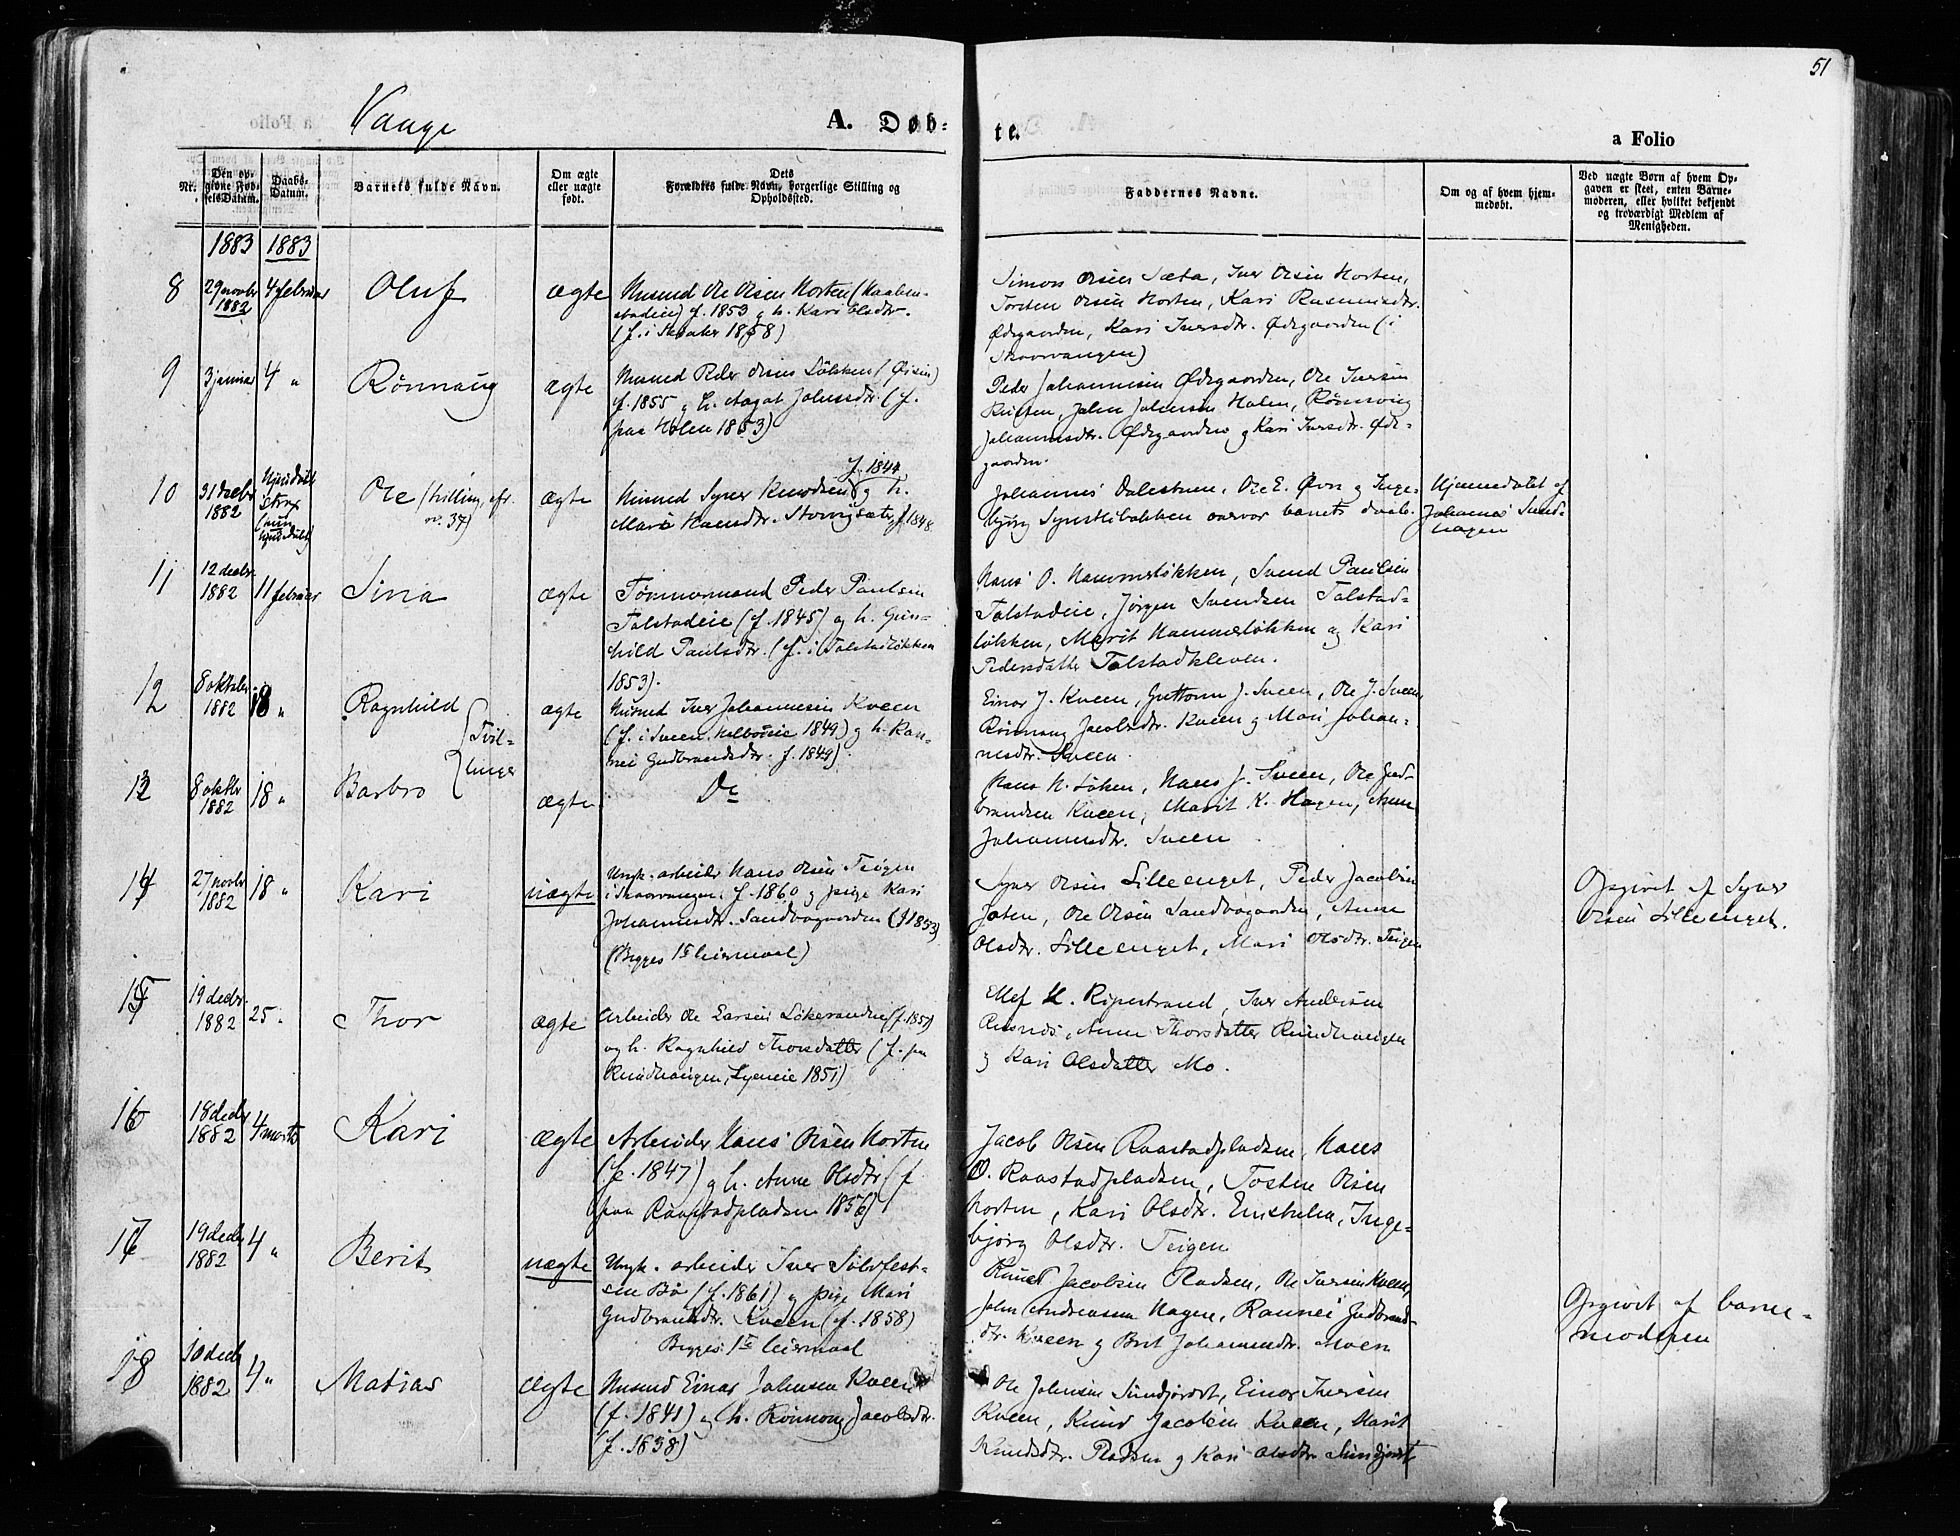 51
Vaage
A. Døb-
te.
a Folio
Nr.
Den opgivne Fødsels-Datum.
Daabs-Datum.
Barnets fulde Navn.
Om ægte eller uægte født.
Dets Forældres fulde Navn, borgerlige Stilling og Opholdssted.
Faddernes Navne.
Om og af hvem hjemmedøbt.
Ved uægte Børn af hvem Opgaven er skeet, enten Barnemoderen, eller hvilket bekjendt og troværdigt Medlem af Menigheden.
1883 1883
8 29 novbr 1882 4 februar Oluf ægte
Husmd Ole Olsen Horten
stadeie) f. 1853 g h. Kari Olsdtr.
(f. i 1858)
Simon Olsen Sæta, Iver Olsen Horten,
Torsten Olsen Horten, Kari Rasmusdtr.
Ødegaarden, Kari Iversdtr. Ødegaarden (i
Skoorvangen)
9 3 januar 4 " Rønnaug ægte
Husmd Peder Olsen Løkken (Øien)
f. 1855 g h. Aagot Johnsdtr. (f.
paa Holen 1853)
Peder Johannesen Ødegaarden, Ole Iversen
John Johnsen Holen, Rønnaug
Johannesdtr. Ødegaarden g Kari Iversdtr. Øde-
gaarden.
10 31 decbr 1882 Hjemdøbt strax
Ole (tvilling, cfr. nr. 37) ægte
f. 1844
Husmd Syver Knudsen g h.
Mari Hansdtr. f. 1848
Johannes Dalestuen, Ole E. Øvre g Inge-
bjørg overvar barnets daab.
Hjemmedøbt af
Johannes Sund-
hagen
11 12 decbr. 1882 11 februar Sina ægte
Tømmermand Peder Paulsen
Tolstadeie (f. 1845) og h. Gun-
hild Paulsdtr. (f. i Tolstadløkken
1853).
Hans O. Hammerløkken, Svend Paulsen
Tolstadeie, Jørgen Svendsen Tolstad-
løkken, Marit Hammerløkken og Kari
Pedersdatter Tolstadkleven.
12 8 oktober 1882 18 " Ragnhild ægte
Husmd Iver Johannesen Kveen
(f. i Sveen 1849) g h. Ran-
nei Gudbrandsdtr. f. 1849).
Tvil-
linger
Einar J. Kveen, Guttorm J. Sveen, Ole J. Sveen,
Rønnaug Jacobsdtr. Kveen g Mari Johan-
nesdtr. Sveen.
13 8 oktbr 1882 18 " Barbro ægte
Do
Hans H. Løken, Hans J. Sveen, Ole Gud-
brandsen Kveen, Marit K. Hagen, Anne
Johannesdtr. Sveen
14 27 novbr 1882 18 " Kari uægte
Ungk. arbeider Hans Olsen Teigen
i Skoorvangen f. 1860 g pige Kari
Johannesdtr. Sandbogaarden (f 1853)
(Begges 1ste leiermaal)
Syver Olsen Lilleenget, Peder Jacobsen
Ole Olsen Sandbogaarden, Anne
Olsdtr. Lilleenget, Mari Olsdtr. Teigen
Opgivet af Syver
Olsen Lilleenget.
15 19 decbr. 1882 25 " Thor ægte
Arbeider Ole Larsen
og h. Ragnhild Thorsdatter (f. paa
1851)
Ellef H. Ripestrand, Iver Andersen
Anne Thorsdatter
g Kari Olsdatter Mo.
16 18 decbr 1882 4 marts Kari ægte
Arbeider Hans Olsen Horten
(f. 1847) g h. Anne Olsdtr (f
paa Raastadpladsen 1856)
Jacob Olsen Raastadpladsen, Hans
O. Raastadpladsen, Tosten Olsen
Horten, Kari Olsdtr. Inge-
bjørg Olsdtr. Teigen
17 19 decbr 1882 4 " Berit uægte
Ungk. arbeider Iver Sølvfest-
sen Bø (f. 1861) g pige Mari
Gudbrandsdtr. Kveen (f. 1858)
Begges 1ste leiermaal
Knud Jacobsen Pladsen, Ole Iversen Kveen,
John Andreassen Hagen, Rannei Gudbrands-
dtr. Kveen g Brit Johannesdtr. Moen
Opgivet af barne-
moderen
18 10 decbr 1882 4 " Matias ægte
Husmd Einar Johnsen Kveen
(f. 1841) g h. Rønnoug Jacobsdtr.
(f. 1838)
Ole Johnsen Sundjordet, Einar Iversen
Kveen, Knud Jacobsen Kveen, Marit
Knudsdtr. Pladsen g Kari Olsdtr. Sundjordet